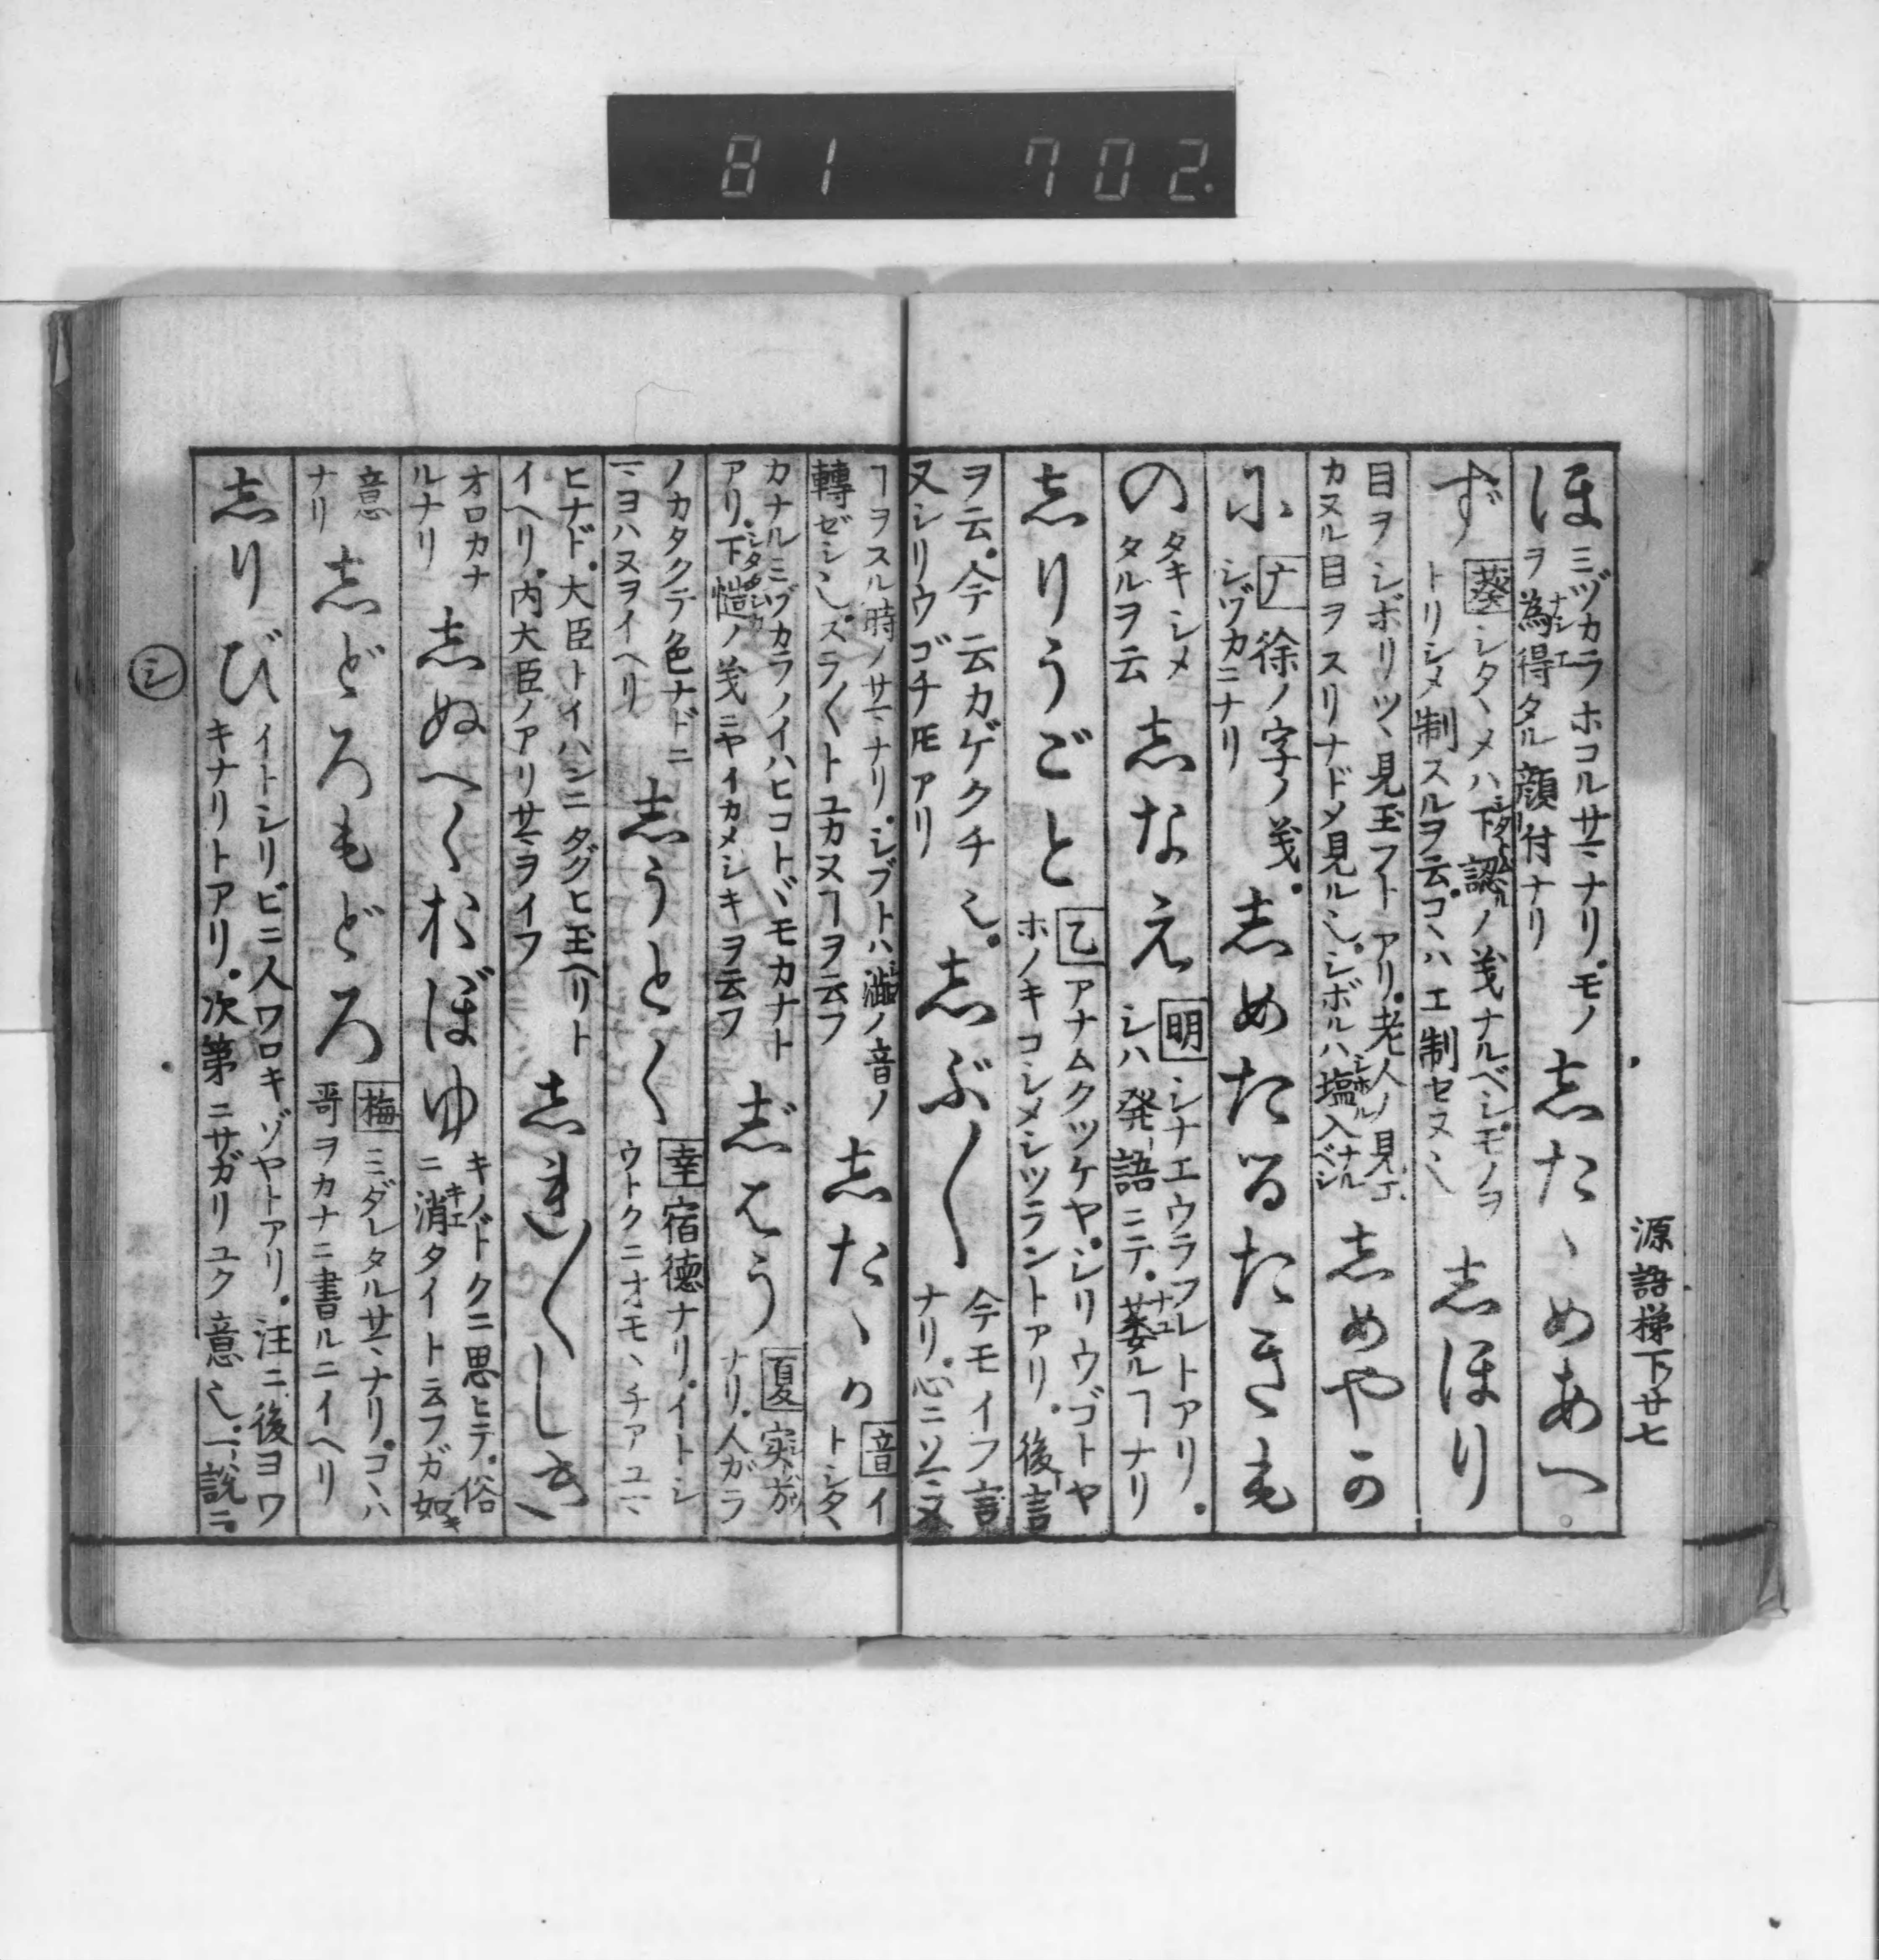 81 702.
源語梯下廿七
ほ ミヅカラホコルサマナリ。モノ
ヲ為得タル顔付ナリ
志たゝめあへ
ず 葵 シタヽメハ下認ノ義ナルベシ。モノヲ
トリシメ制スルヲ云。コヽハエ制セヌ也
志ほり
目ヲシボリツヽ見玉フトアリ。老人ノ見エ
カヌル目ヲスリナドメ見ル也。シボルハ塩入ナルベシ
志めやか
に ナ 徐ノ字ノ義。
シヅカニナリ
志めたるたきも
の タキシメ
タルヲ云
志なえ 明 シナエウラフレトアリ。
シハ発語ニテ。萎ルヿナリ
志りうごと 乙 アナムクツケヤ。シリウゴトヤ
ホノキコシメシツラントアリ。後言
ヲ云。今云カゲクチ也。
又シリウゴチ𪜈アリ
志ぶ〳〵 今モイフ言
ナリ。心ニソマヌ
ヿヲスル時ノサマナリ。シブトハ澁ノ音ノ
轉ゼシ也。スラ〳〵トユカヌヿヲ云フ
志たゝか 音 イ
トシタヽ
カナルミヅカラノイハヒコトドモカナト
アリ。下慥ノ義ニヤイカメシキヲ云フ
志はう 夏 実法
ナリ。人ガラ
ノカタクテ色ナドニ
マヨハヌヲイヘリ
志うとく 幸 宿徳ナリ。イトシ
ウトクニオモヽチアユマヽ
ヒナド。大臣トイハンニタグヒ玉ヘリト
イヘリ。内大臣ノアリサマヲイフ
志れ〳〵しき
オロカナ
ルナリ
志ぬへくおぼゆ キノドクニ思ヒテ。俗
ニ消タイト云フガ如キ
意
ナリ
志どろもどろ 梅 ミダレタルサマナリ。コヽハ
哥ヲカナニ書ルニイヘリ
志りび イトシリビニ人ワロキゾヤトアリ。注ニ後ヨワ
キナリトアリ。次第ニサガリユク意也。一説ニ
シ